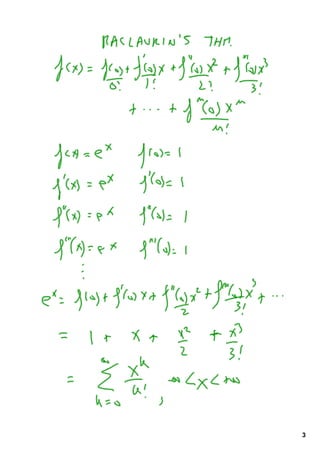 MACLAURIN'S THM.
f(x) = f(0)/0! + f'(0)x/1! + f''(0)x²/2! + f'''(0)x³/3!
+ ... + fⁿ(0)xⁿ/n!
f(x) = eˣ f(0) = 1
f'(x) = eˣ f'(0) = 1
f''(x) = eˣ f''(0) = 1
f'''(x) = eˣ f'''(0) = 1
⋮
eˣ = f(0) + f'(0)x + f''(0)x²/2 + f'''(0)x³/3! + ...
= 1 + x + x²/2 + x³/3!
= ∞∑k=0 xᵏ/k! , -∞<x<+∞
3